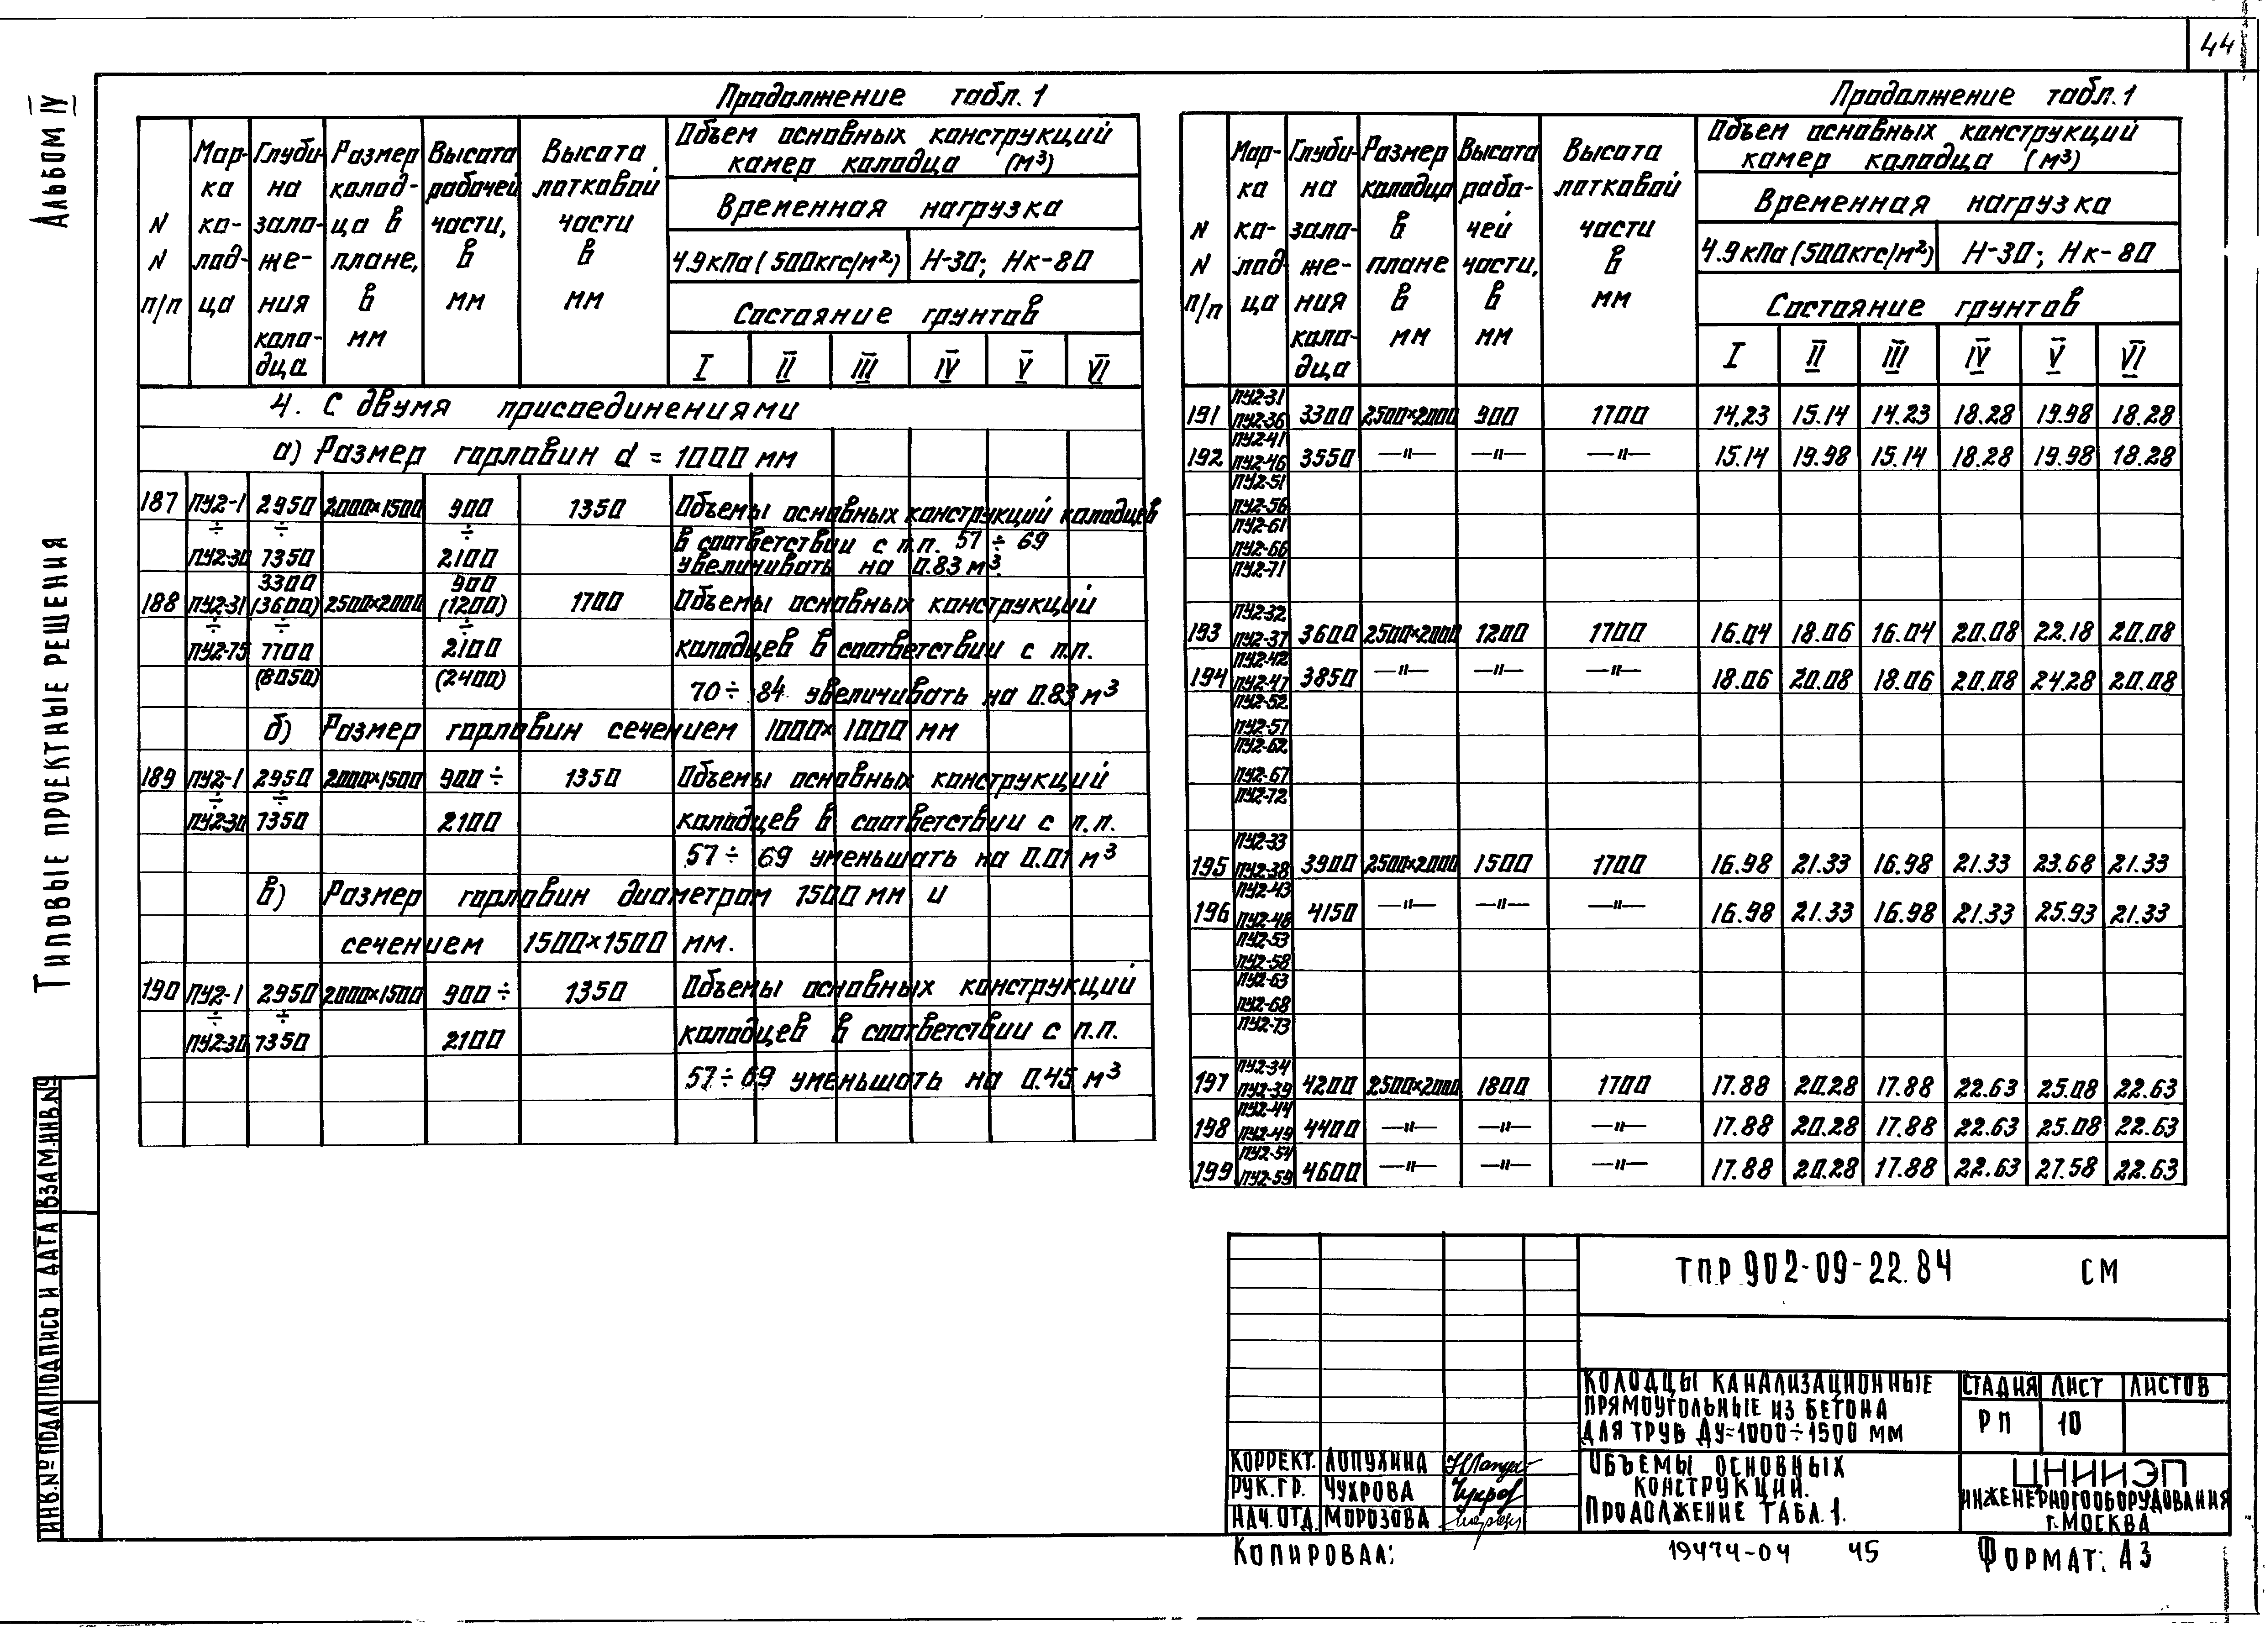 44
Альбом IV
Типовые проектные решения
ИНВ.№ ПОДЛ ПОДПИСЬ И ДАТА ВЗАМ.ИНВ.№
Продолжение табл. 1
N N п/п
Марка колодца
Глубина заложения колодца
Размер колодца в плане, в мм
Высота рабочей части, в мм
Высота лотковой части в мм
Объем основных конструкций
камер колодца (м³)
Временная нагрузка
4.9кПа (500кгс/м²) Н-30; Нк-80
Состояние грунтов
I II III IV V VI
4. С двумя присоединениями
а) Размер горловин d = 1000 мм
187 ПУ2-1 2950 2000×1500 900 1350 Объемы основных конструкций колодцев
÷ ÷ ÷ в соответствии с п.п. 57 ÷ 69
ПУ2-30 7350 2100 увеличивать на 0.83 м³.
3300 900
188 ПУ2-31 (3600) 2500×2000 (1200) 1700 Объемы основных конструкций
÷ ÷ ÷
ПУ2-75 7700 2100 колодцев в соответствии с п.п.
(8050) (2400) 70 ÷ 84 увеличивать на 0.83 м³
б) Размер горловин сечением 1000×1000 мм
189 ПУ2-1 2950 2000×1500 900 ÷ 1350 Объемы основных конструкций
÷ ÷
ПУ2-30 7350 2100 колодцев в соответствии с п.п.
57 ÷ 69 уменьшать на 0.01 м³
в) Размер горловин диаметром 1500 мм и
сечением 1500×1500 мм.
190 ПУ2-1 2950 2000×1500 900 ÷ 1350 Объемы основных конструкций
÷ ÷
ПУ2-30 7350 2100 колодцев в соответствии с п.п.
57 ÷ 69 уменьшать на 0.45 м³
Продолжение табл. 1
N N п/п
Марка колодца
Глубина заложения колодца
Размер колодца в плане в мм
Высота рабочей части, в мм
Высота лотковой части в мм
Объем основных конструкций
камер колодца (м³)
Временная нагрузка
4.9кПа (500кгс/м²) Н-30; Нк-80
Состояние грунтов
I II III IV V VI
ПУ2-31
191 ПУ2-36 3300 2500×2000 900 1700 14.23 15.14 14.23 18.28 19.98 18.28
ПУ2-41
192 ПУ2-46 3550 —"— —"— —"— 15.14 19.98 15.14 18.28 19.98 18.28
ПУ2-51
ПУ2-56
ПУ2-61
ПУ2-66
ПУ2-71
ПУ2-32
193 ПУ2-37 3600 2500×2000 1200 1700 16.04 18.06 16.04 20.08 22.18 20.08
ПУ2-42
194 ПУ2-47 3850 —"— —"— —"— 18.06 20.08 18.06 20.08 24.28 20.08
ПУ2-52
ПУ2-57
ПУ2-62
ПУ2-67
ПУ2-72
ПУ2-33
195 ПУ2-38 3900 2500×2000 1500 1700 16.98 21.33 16.98 21.33 23.68 21.33
ПУ2-43
196 ПУ2-48 4150 —"— —"— —"— 16.98 21.33 16.98 21.33 25.93 21.33
ПУ2-53
ПУ2-58
ПУ2-63
ПУ2-68
ПУ2-73
ПУ2-34
197 ПУ2-39 4200 2500×2000 1800 1700 17.88 20.28 17.88 22.63 25.08 22.63
ПУ2-44
198 ПУ2-49 4400 —"— —"— —"— 17.88 20.28 17.88 22.63 25.08 22.63
ПУ2-54
199 ПУ2-59 4600 —"— —"— —"— 17.88 20.28 17.88 22.63 27.58 22.63
ТПР 902-09-22.84 СМ
КОЛОДЦЫ КАНАЛИЗАЦИОННЫЕ
ПРЯМОУГОЛЬНЫЕ ИЗ БЕТОНА
ДЛЯ ТРУБ ДУ=1000÷1500 ММ
СТАДИЯ ЛИСТ ЛИСТОВ
РП 10
КОРРЕКТ. ЛОПУХИНА
РУК.ГР. ЧУХРОВА
НАЧ.ОТД. МОРОЗОВА
ОБЪЕМЫ ОСНОВНЫХ
КОНСТРУКЦИЙ.
ПРОДОЛЖЕНИЕ ТАБЛ. 1.
ЦНИИЭП
ИНЖЕНЕРНОГООБОРУДОВАНИЯ
Г.МОСКВА
КОПИРОВАЛ:
19474-04 45
ФОРМАТ: А3